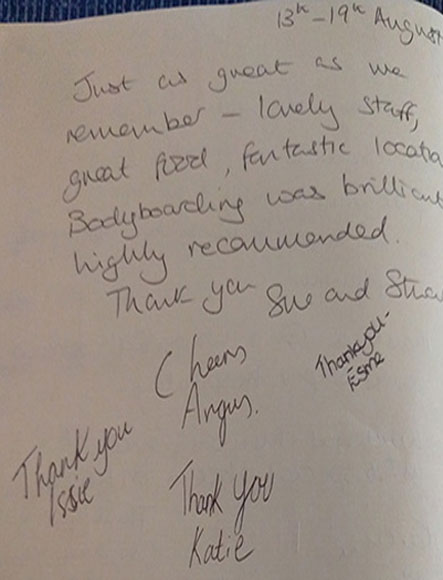 13th - 19th August
Just as great as we
remember - lovely staff,
great food, fantastic locatio
Bodyboarding was brilliant
highly recommended.
Thank you Sue and
Cheers
Angus.
Thankyou-
Esme
Thank you
Issie
Thank you
Katie